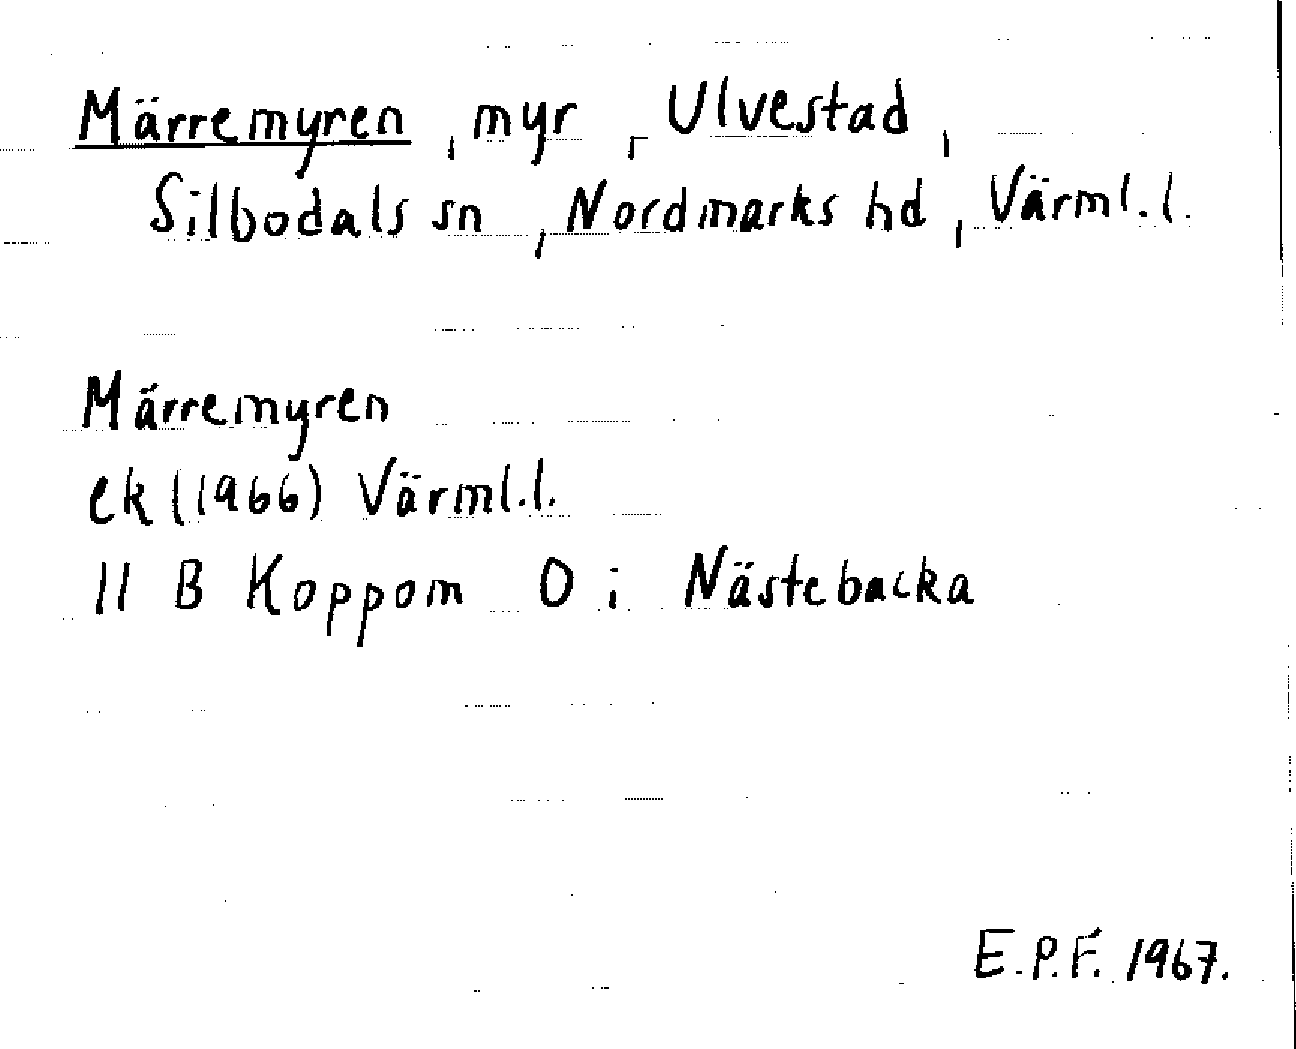 Märremyren, myr, Ulvestad,
Silbodals sn, Nordmarks hd, Värml.l.
Märremyren
ek (1966) Värml.l.
11 B Koppom O i Nästebacka
E.P.F. 1967.